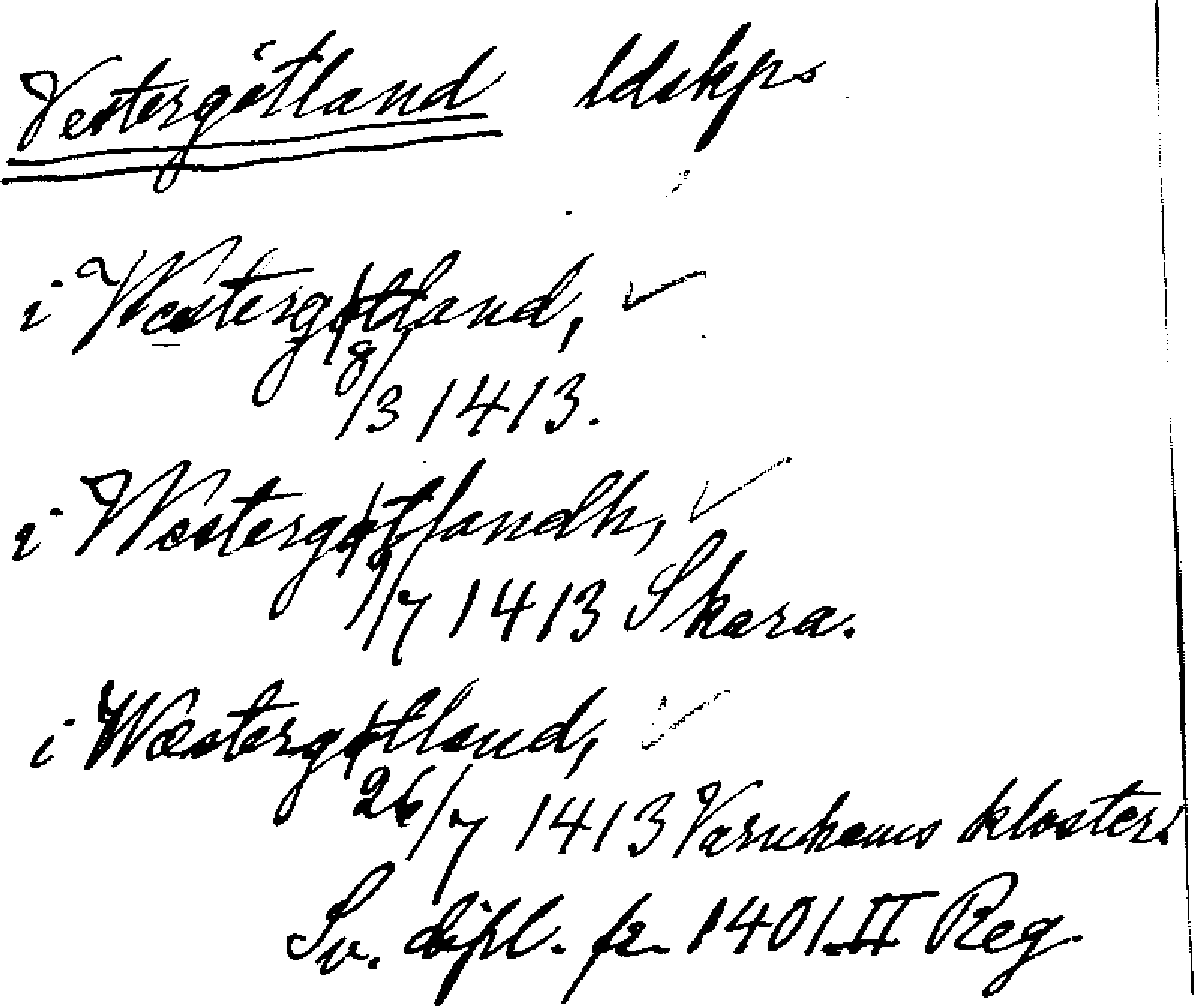 Vestergötland ldskp.
i Westergøtland,
8/3 1413.
i Wæstergøtlandh,
9/7 1413 Skara.
i Wæstergøtland,
26/7 1413 Varnhems kloster
Sv. dipl. fr. 1401 II Reg